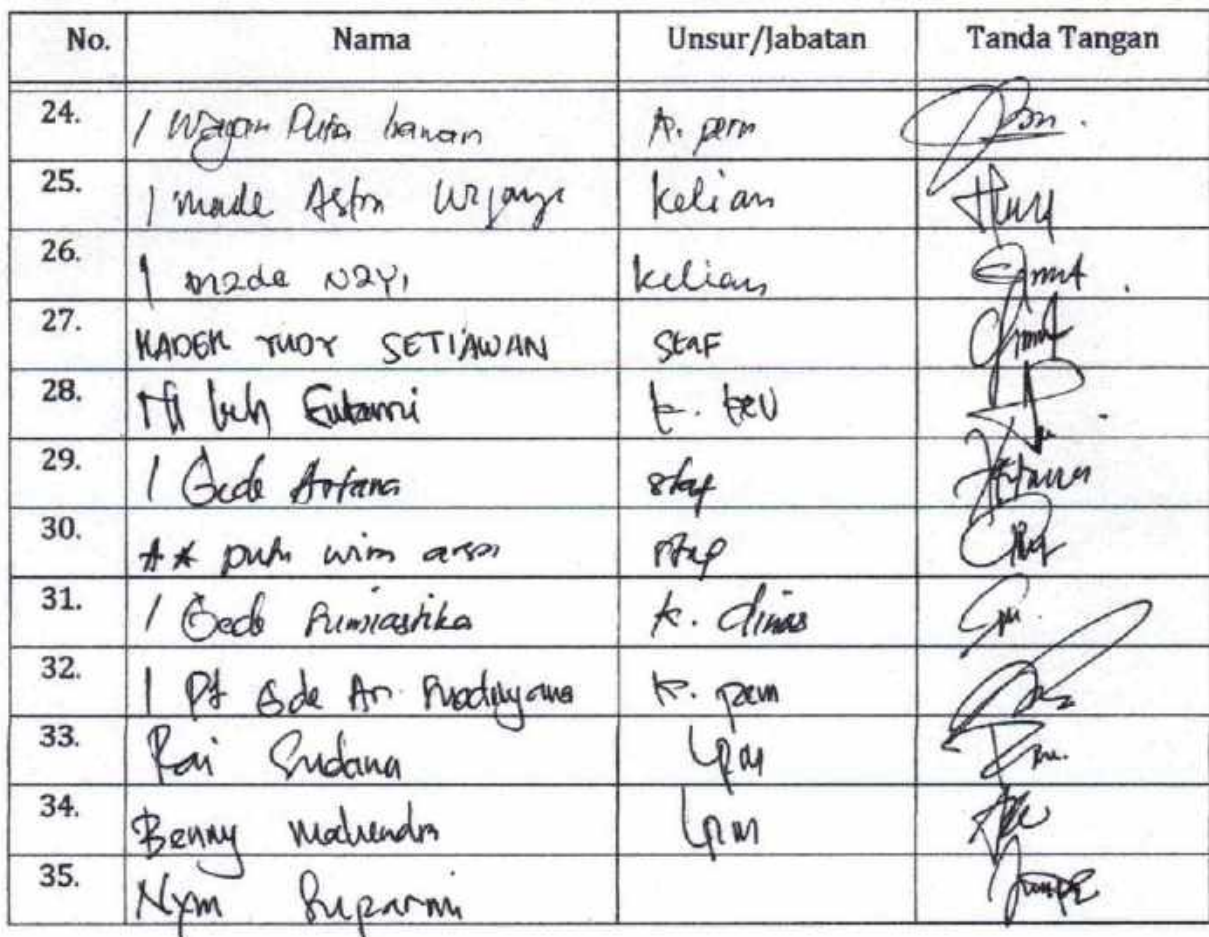 No. Nama Unsur/Jabatan Tanda Tangan
24. I Wayan Putra K. pem
25. I made Astra Wijaya kelian
26. I made kelian
27. KADEK YUDY SETIAWAN staf
28. Ni luh k. keu
29. I Gede Artana staf
30. putu staf
31. I Gede Sumiastika k. dinas
32. I Pt Gde Ari k. pem
33. Rai Sudana Lpm
34. Benny Mahendra Lpm
35. Nym Suparmi